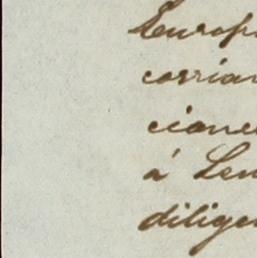 Europ
corrian
ciones
á Len
diligen